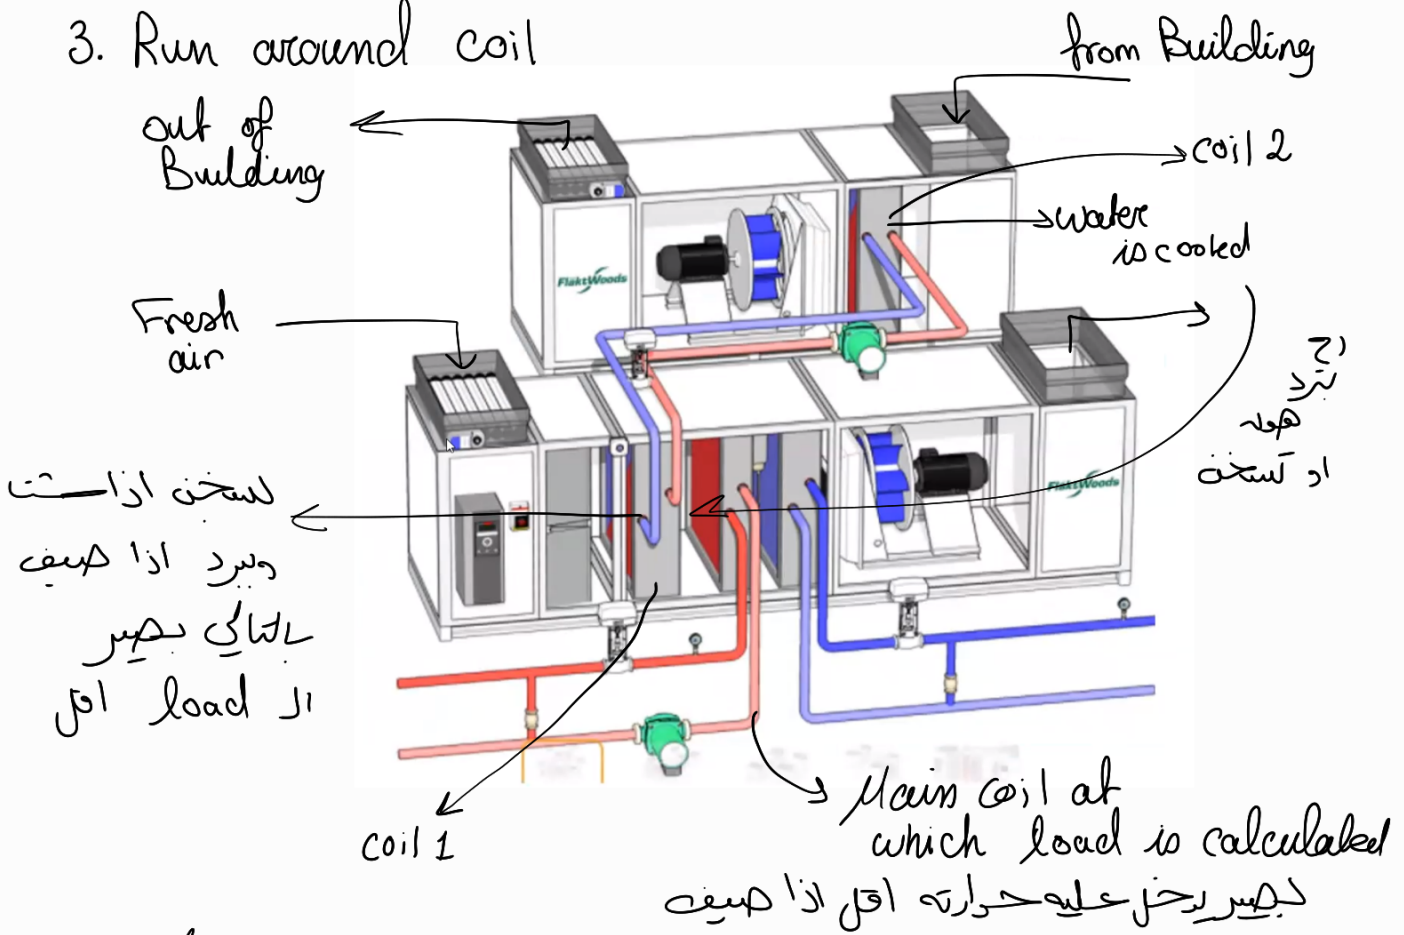 3. Run around coil
from Building
out of
Building
coil 2
water
is cooled
FläktWoods
Fresh
air
راح
تبرد
هون
او تسخن
FläktWoods
تسخن اذا شتا
وتبرد اذا صيف
بالتالي بصير
ال load اقل
coil 1
Main coil at
which load is calculated
بصير يدخل عليه حرارته اقل اذا صيف